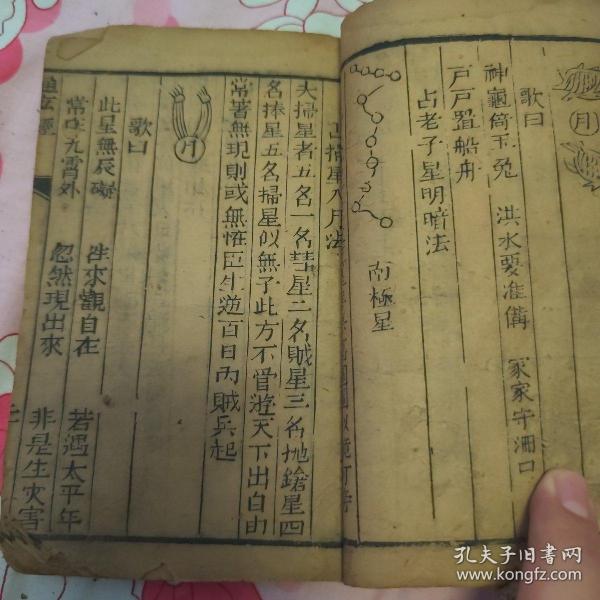 月
歌曰
神龜符玉兔 洪水要准備 家家守洲口
戸戸置船舟
占老子星明暗法
南極星
占掃星入月法
夫掃星者五名一名彗星二名賊星三名地鎗星四
名捧星五名掃星似無子此方不管遊天下出自由
常著無現則或無性臣生遊百日内賊兵起
月
歌曰
此星無辰礙 往來觀自在 若遇太平年
常在九霄外 忽然現出來 非是生灾害
孔夫子旧书网
www.kongfz.com